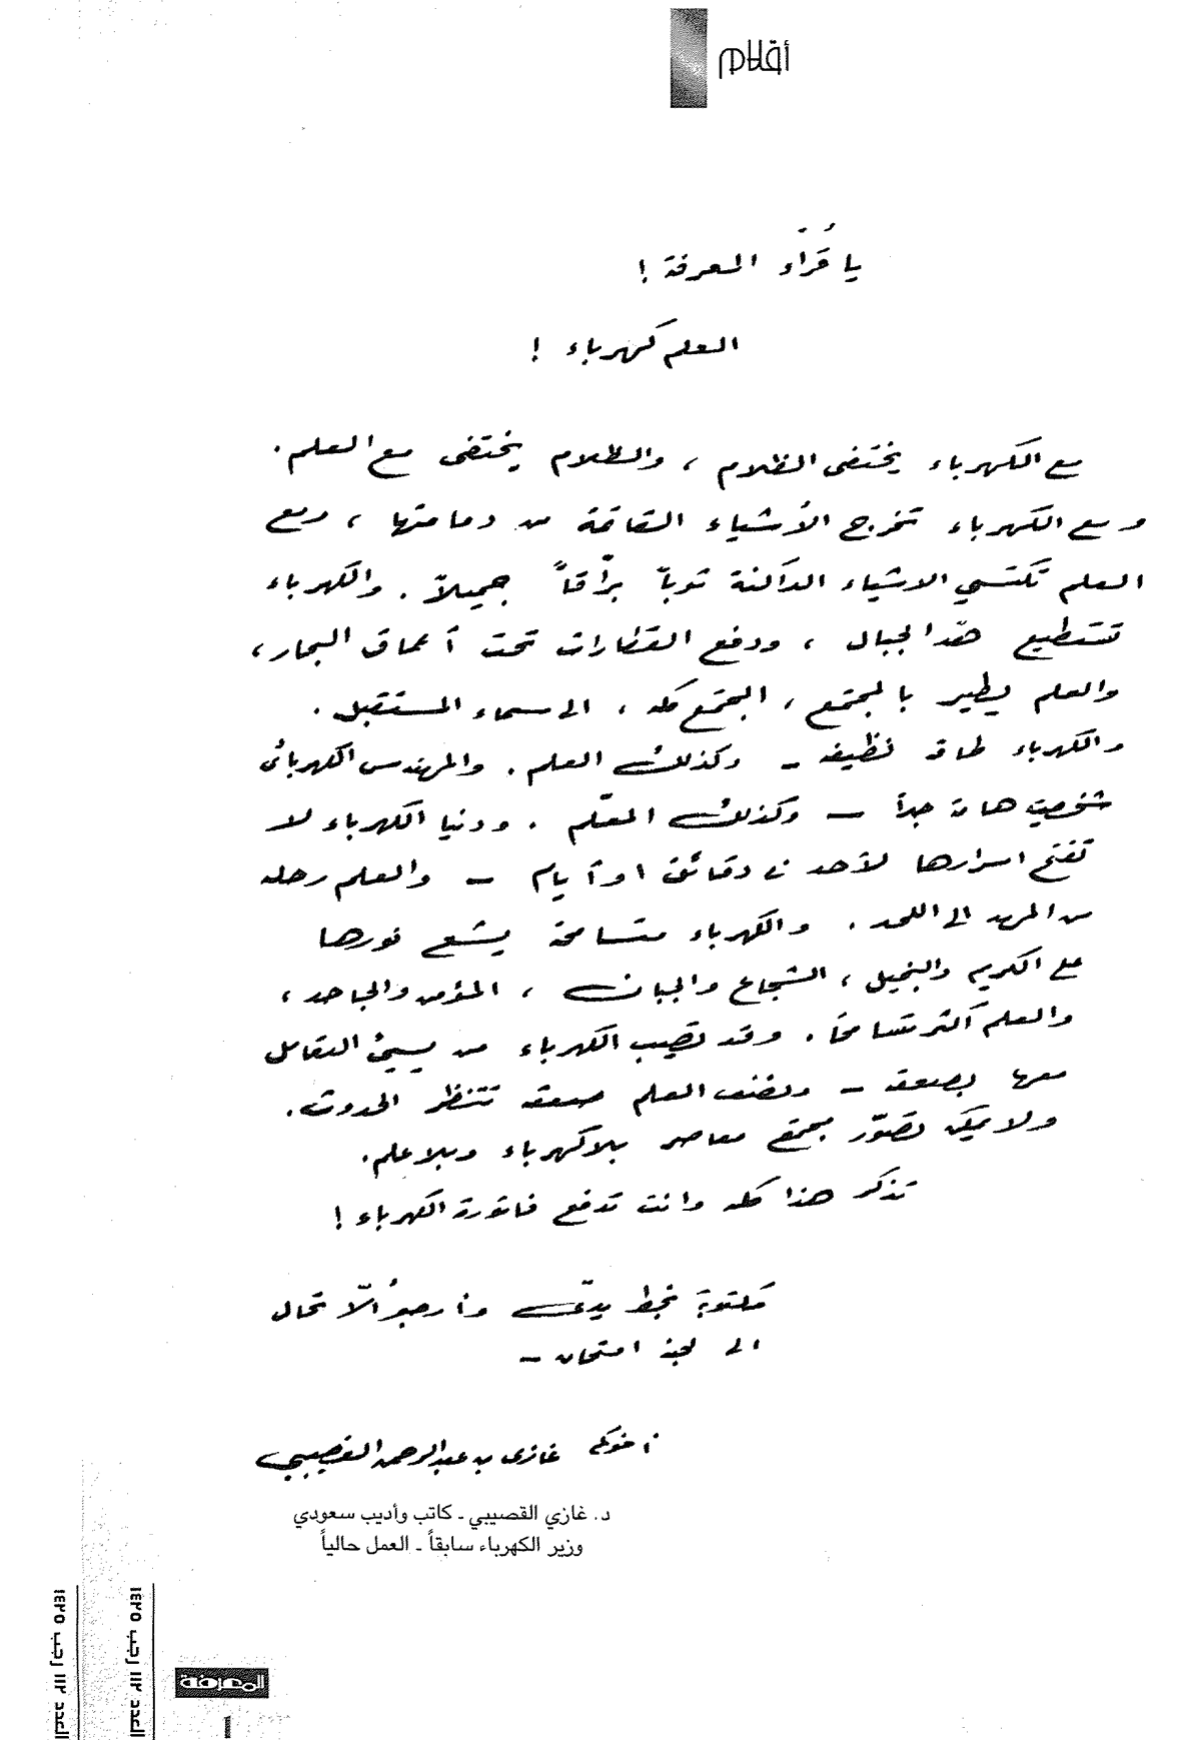 أقلام
يا قُرّاء المعرفة !
العلم كهرباء !
مع الكهرباء يختفى الظلام ، والظلام يختفى مع العلم .
ومع الكهرباء تخرج الأشياء القاتمة من دمامتها ، ومع
العلم تكتسي الاشياء الداكنة ثوباً برّاقاً جميلاً . والكهرباء
تستطيع هدّ الجبال ، ودفع القطارات تحت أعماق البحار ،
والعلم يطير بالمجتمع ، المجتمع كله ، الى سماء المستقبل .
والكهرباء طاقة نظيفة - وكذلك العلم . والمهندس الكهربائى
شخصية هامة جداً - وكذلك المعلّم . ودنيا الكهرباء لا
تفتح اسرارها لأحد فى دقائق او أيام - والعلم رحلة
من المهد الى اللحد . والكهرباء متسامحة يشع نورها
على الكريم والبخيل ، الشجاع والجبان ، المؤمن والجاحد ،
والعلم أكثر تسامحاً . وقد تصيب الكهرباء من يسيئ التعامل
معها بصعقة - ونصف العلم صعقة تنتظر الحدوث .
ولا يمكن تصوّر مجتمع معاصر بلا كهرباء وبلا علم .
تذكر هذا كله وانت تدفع فاتورة الكهرباء !
مكتوبة بخط يدّى وأرجو ألّا تحال
الى لجنة امتحان -
أخوكم غازى بن عبدالرحمن القصيبي
د. غازي القصيبي ـ كاتب وأديب سعودي
وزير الكهرباء سابقاً ـ العمل حالياً
العدد ١١٢ رجب ١٤٢٥
العدد ١١٢ رجب ١٤٢٥
المعرفة
١